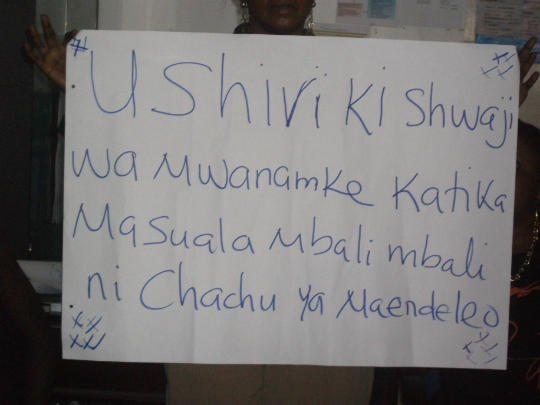 UShirikishwaji
wa Mwanamke Katika
Masuala Mbali mbali
ni Chachu ya Maendeleo